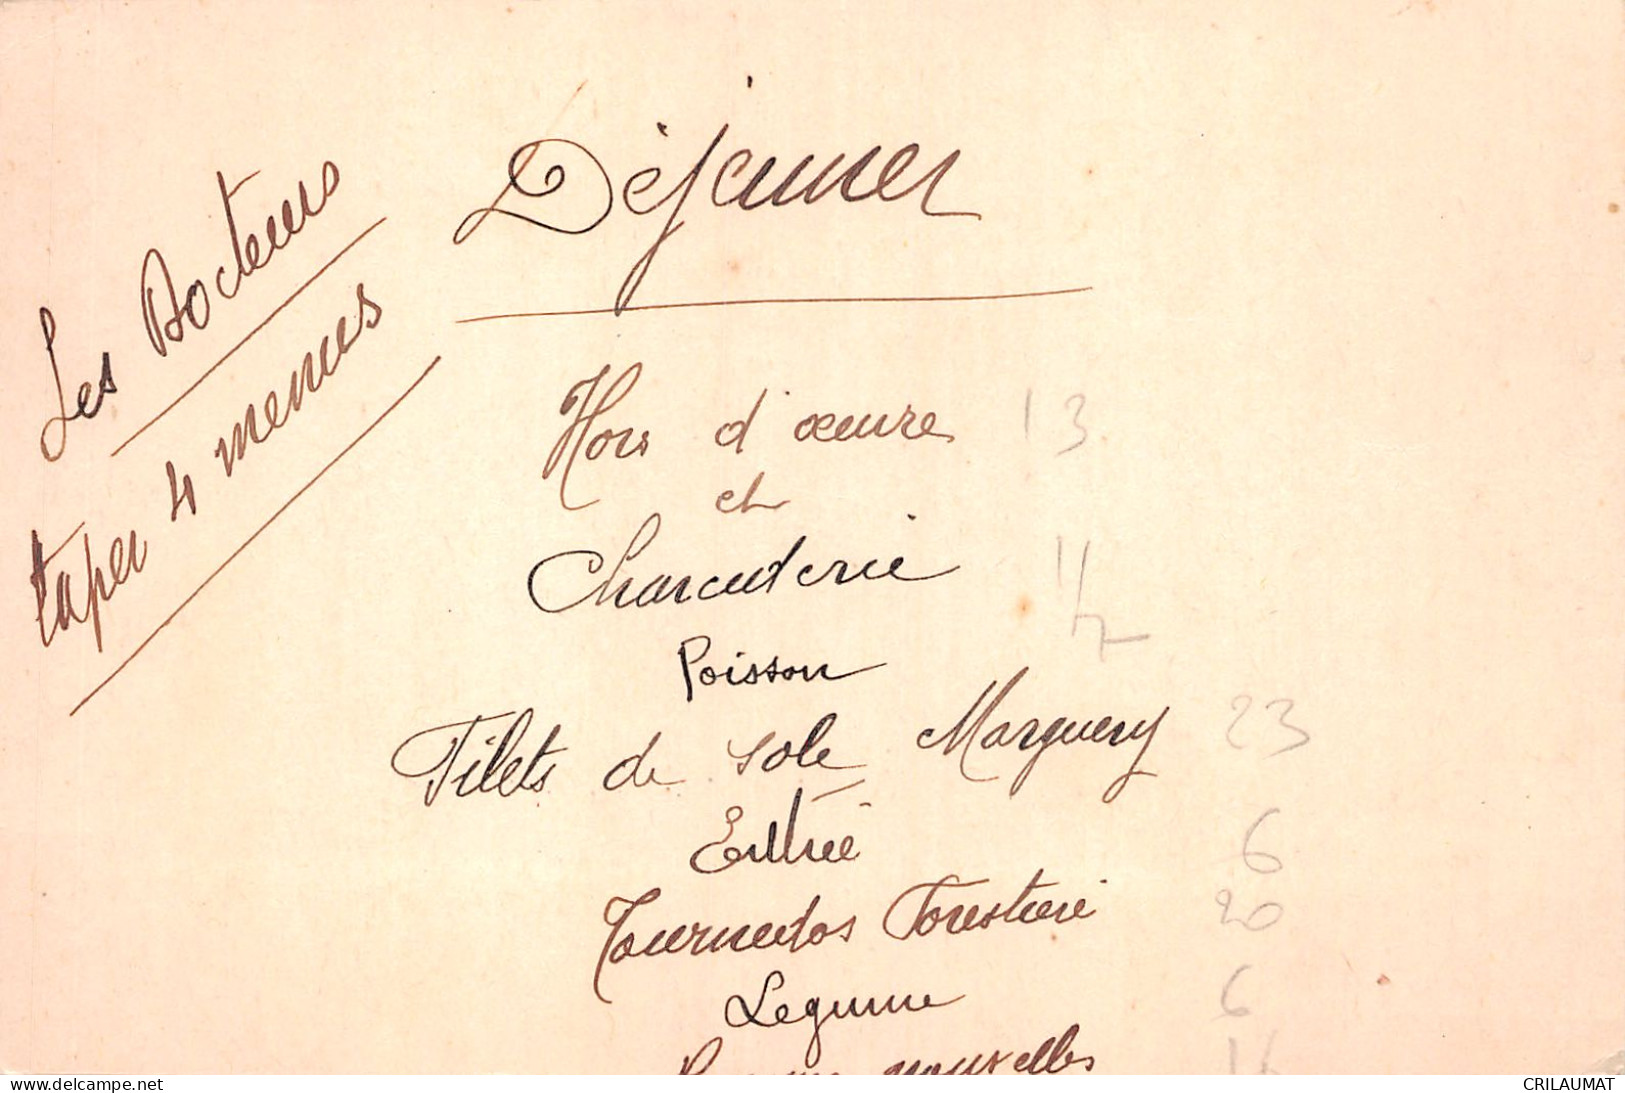 Les Docteurs
taper 4 menus
Déjeuner
Hors d'œuvre 13
et
Charcuterie 11
7
Poisson
Filets de sole Marguery 23
Entrée 6
Tournedos Forestière 20
Legume 6
Pommes nouvelles
delcampe.net
CRILAUMAT